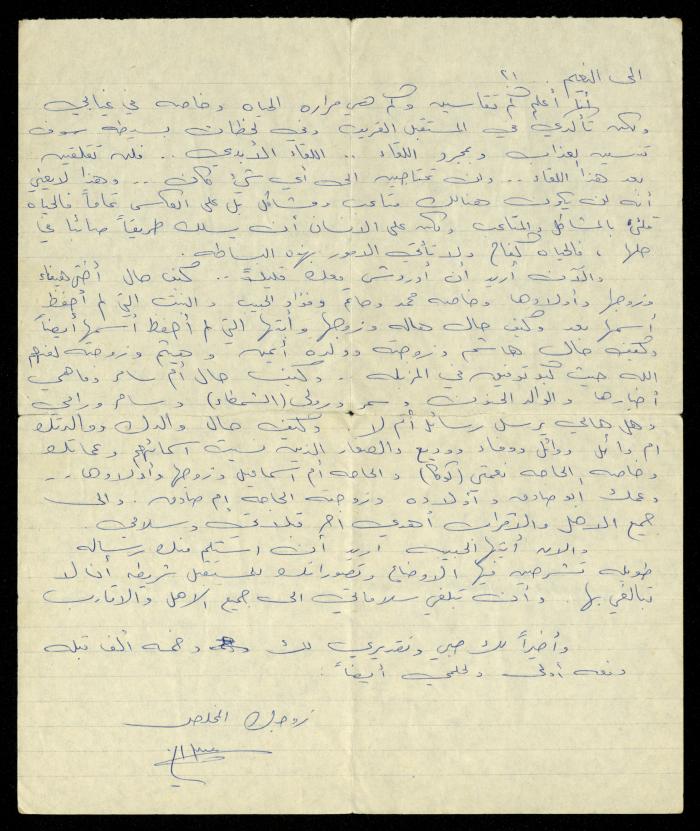 الى النعيم .. ٢١
أعلم كم تقاسين وكم هي مراره الحياه وخاصه في غيابي
ولكن تأكدي في المستقبل القريب وفي لحظات بسيطه سوف
تنسين لعذاب وبمجرد اللقاء .. اللقاء الأبدي .. فلن تقلقين
بعد هذا اللقاء .. ولن تحتاجين الى أي شيء كان .. وهذا لا يعني
أنه لن يكون هنالك متاعب ومشاكل بل على العكس تماماً فالحياه
ملئ بالمشاكل والمتاعب ولكن على الانسان أن يسلك طريقاً صائباً في
حلها ، فالحياه كفاح ولا تأتي الامور بهذه البساطه .
والآن أريد أن أدردش معك قليلاً .. كيف حال أختي هيفاء
وزوجها وأولادها وخاصه محمد وحاتم وفؤاد الحبيب والبنت التي لم أحفظ
أسمها بعد وكيف حال هاله وزوجها وأبنتها التي لم أحفظ أسمها أيضاً
وكيف حال هاشم وزوجته وولده أيمن وهيثم وزوجته
الله حيث توفيق في المنزله .. وكيف حال أم سامر وما هي
أخبارها والوالد الحنون وسمر ورولى (الشمطاء) وساهر ورامي
وهل هاني يرسل رسائل أم لا وكيف حال والدك ووالدتك
ام وائل ووائل ووفاء ووديع والصغار الذين نسيت اسمائهم وعماتك
وخاصه الحاجه نعمتي (كوكا) والحاجه أم اسماعيل وزوجها وأولادها ..
وعمك أبو صادق وأولاده وزوجته الحاجه إم صادق . والى
جميع الاهل والاقرباء أهدي أحر قبلاتي وسلامي .
والان أيتها الحبيبه أريد أن استلم منك رساله
طويله تشرحين فيها الاوضاع وتصوراتك للمستقبل شريطه أن لا
تبالغي بها . وأن تبلغي سلاماتي الى جميع الاهل والاقارب
وأخيراً لك حبي وتقديري لك وخمسه ألف قبله
دفعه أولى ولحلمي أيضاً .
زوجك المخلص